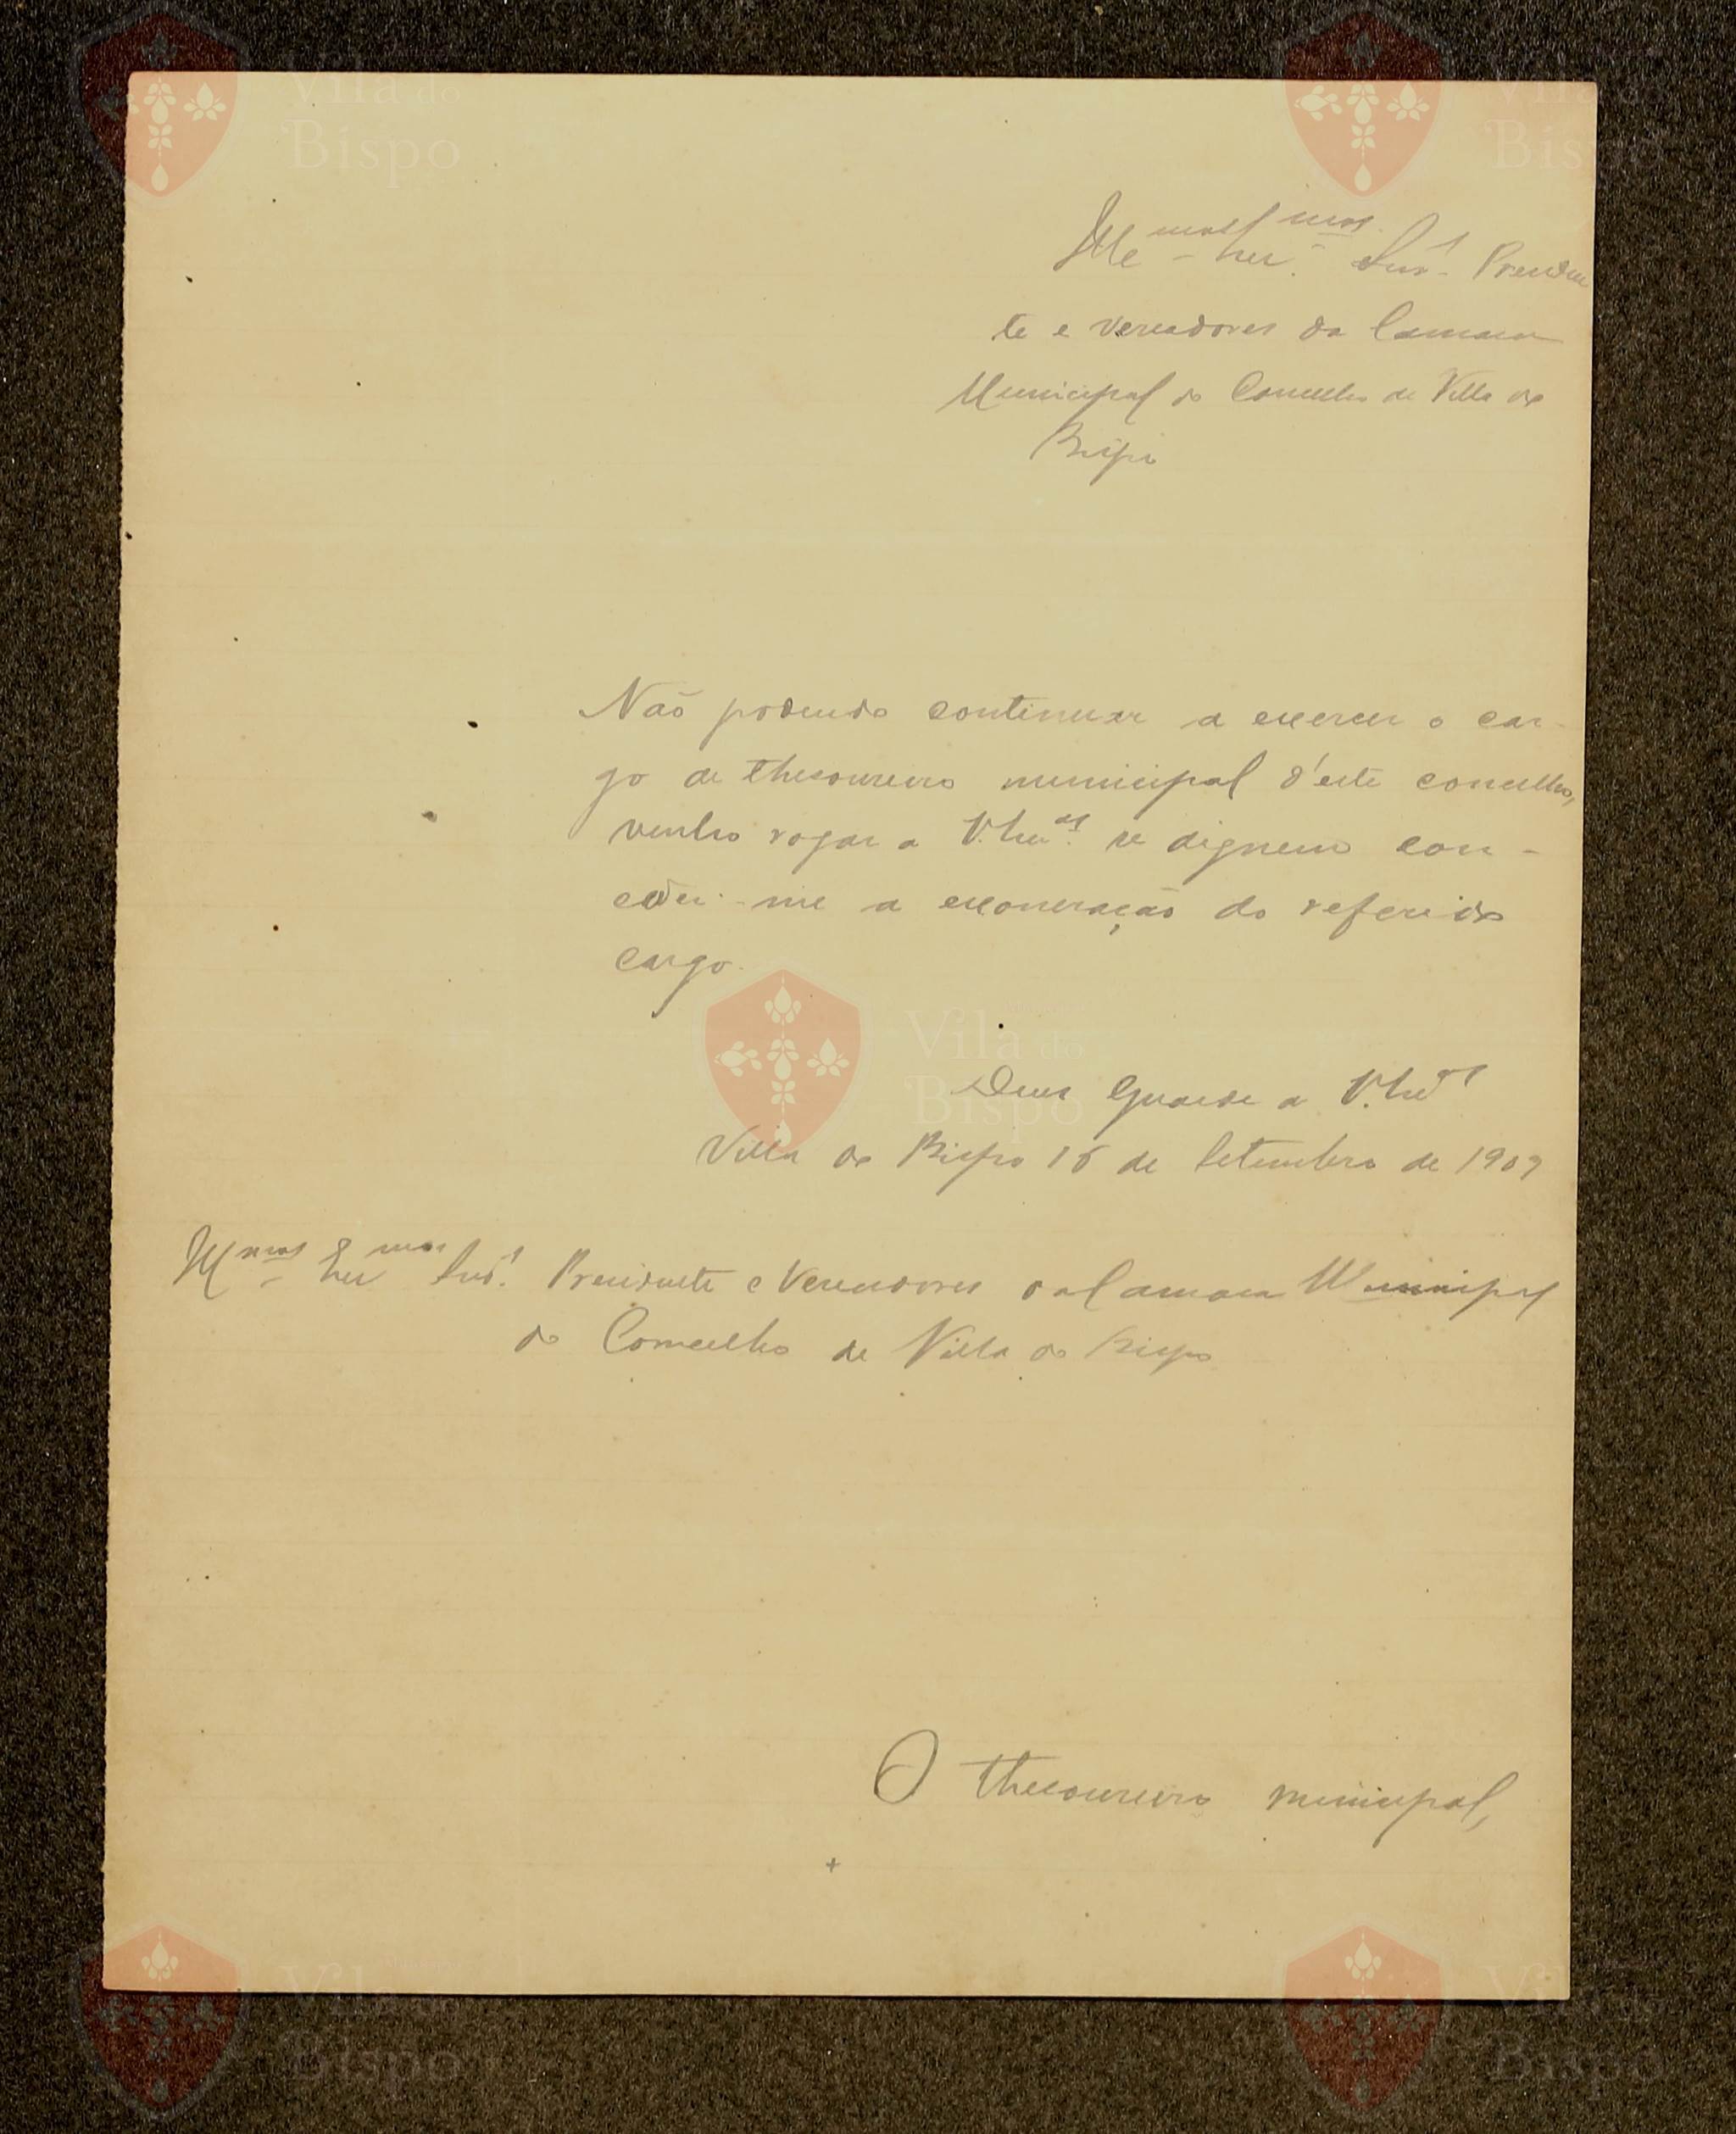 Ill.mos e Ex.mos Snrs. Presiden
te e Vereadores da Camara
Municipal do Concelho de Villa do
Bispo
Não podendo continuar a exercer o car-
go de thesoureiro municipal d'este concelho,
venho rogar a V. Ex.as se dignem con-
ceder-me a exoneração do referido
cargo.
Deus Guarde a V. Ex.as
Villa do Bispo 16 de Setembro de 1909
Ill.mos e Ex.mos Snrs. Presidente e Vereadores da Camara Municipal
do Concelho de Villa do Bispo
O thesoureiro municipal,
Vila do
Bispo